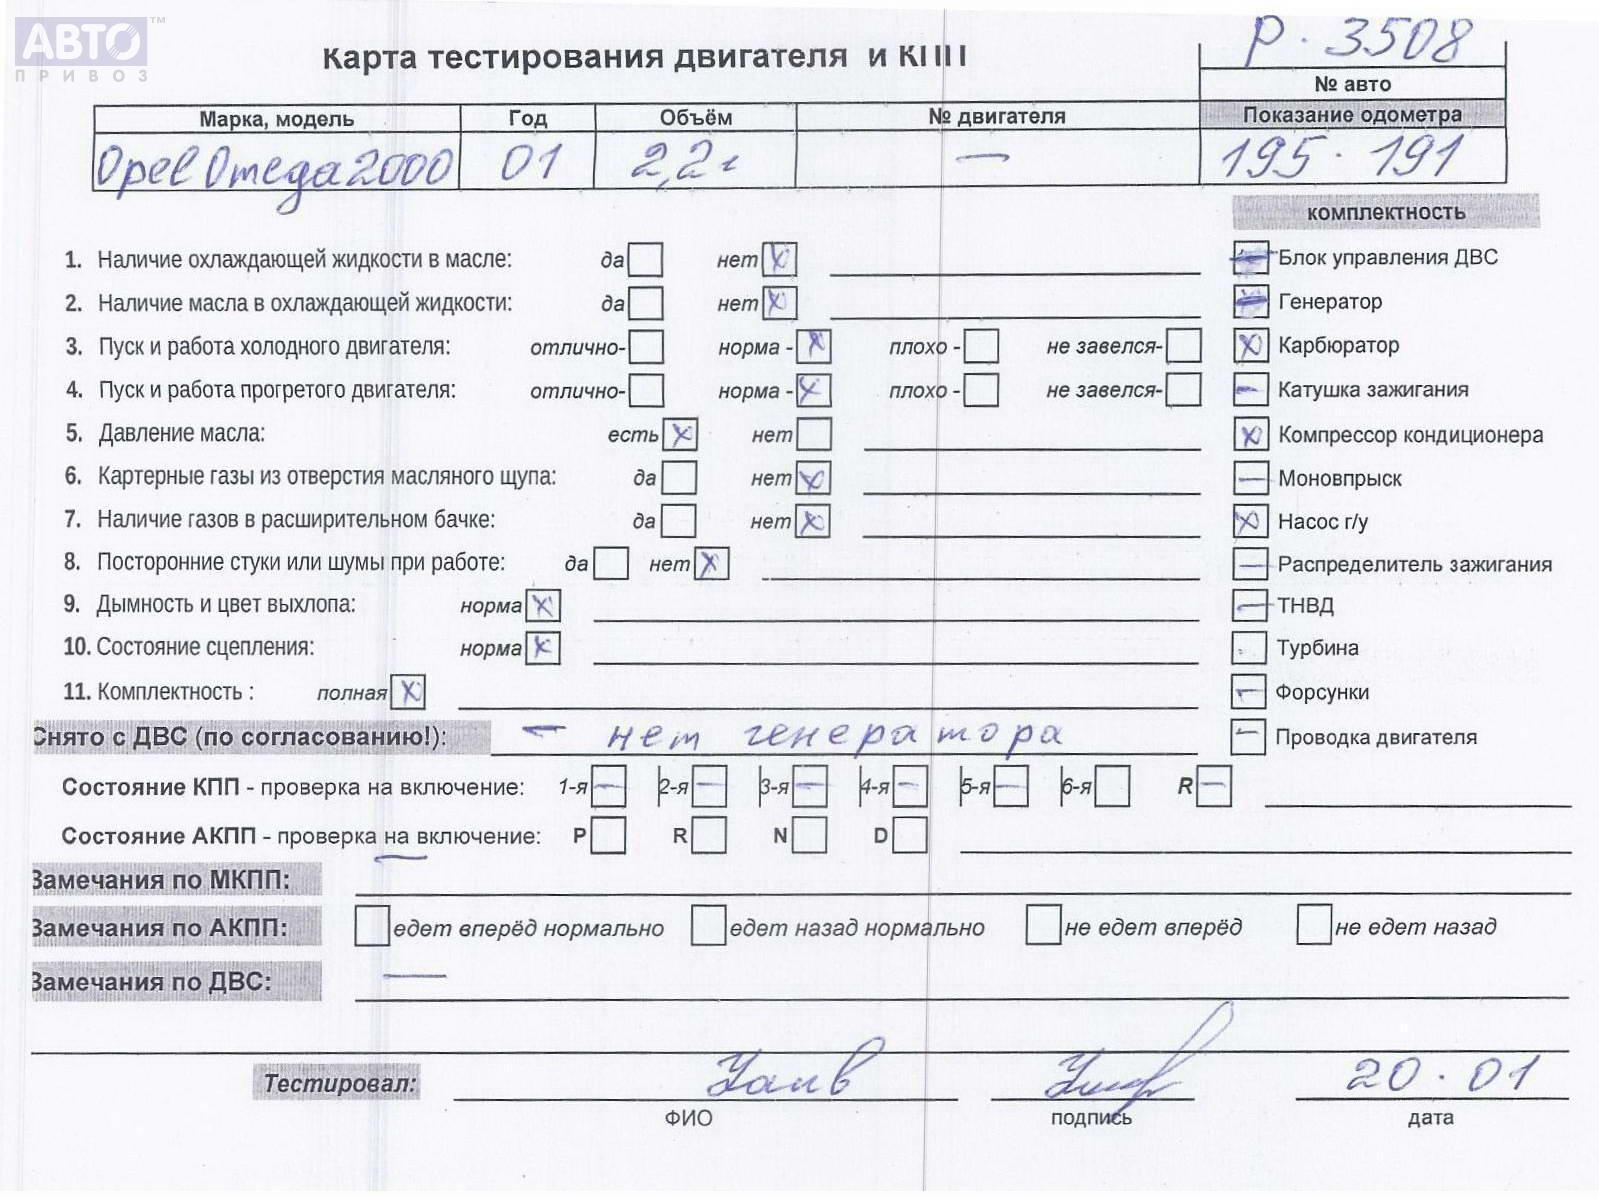 АВТО™
ПРИВОЗ
Карта тестирования двигателя и КПП
Р · 3508
№ авто
Марка, модель Год Объём № двигателя Показание одометра
Opel Omega 2000 01 2,2i — 195 · 191
комплектность
1. Наличие охлаждающей жидкости в масле: да нет x
Блок управления ДВС
2. Наличие масла в охлаждающей жидкости: да нет x
Генератор
3. Пуск и работа холодного двигателя: отлично- норма - x плохо - не завелся-
x Карбюратор
4. Пуск и работа прогретого двигателя: отлично- норма - x плохо - не завелся-
– Катушка зажигания
5. Давление масла: есть x нет
x Компрессор кондиционера
6. Картерные газы из отверстия масляного щупа: да нет x
– Моновпрыск
7. Наличие газов в расширительном бачке: да нет x
x Насос г/у
8. Посторонние стуки или шумы при работе: да нет x
– Распределитель зажигания
9. Дымность и цвет выхлопа: норма x
– ТНВД
10. Состояние сцепления: норма x
Турбина
11. Комплектность : полная x
– Форсунки
Снято с ДВС (по согласованию!): – нет генератора
– Проводка двигателя
Состояние КПП - проверка на включение: 1-я – 2-я – 3-я – 4-я – 5-я – 6-я R –
Состояние АКПП - проверка на включение: P R N D
Замечания по МКПП:
Замечания по АКПП: едет вперёд нормально едет назад нормально не едет вперёд не едет назад
Замечания по ДВС: —
Тестировал: 20 · 01
ФИО подпись дата